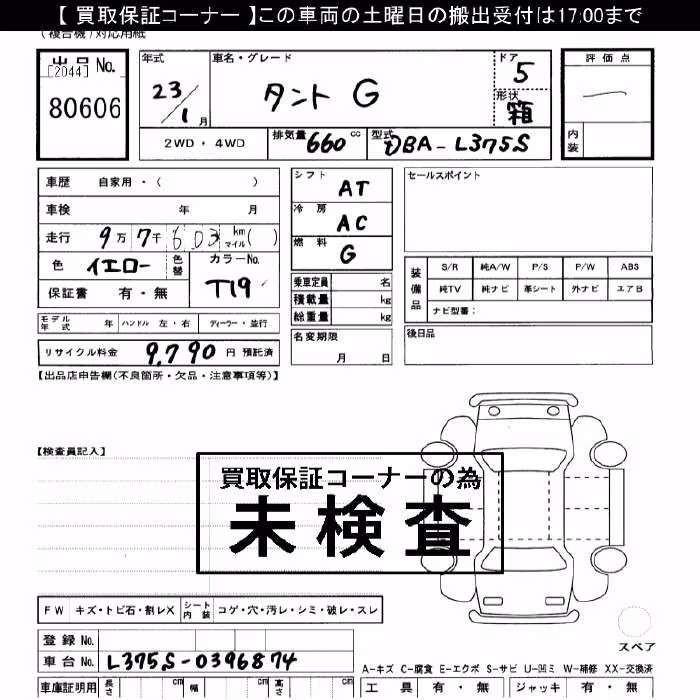 【 買取保証コーナー 】この車両の土曜日の搬出受付は17:00まで
(複合機)対応用紙
出品 No.
[2044]
80606
年式
23/1月
車名・グレード
タント G
ドア
5
形状
箱
評価点
内装
2WD・4WD
排気量 660 cc
型式 DBA-L375S
車歴 自家用・( )
車検 年 月
走行 9万 7千 603 km マイル( )
色 イエロー 色替
カラーNo.
T19
保証書 有・無
シフト AT
冷房 AC
燃料 G
乗車定員 名
積載量 kg
総重量 kg
セールスポイント
装備品
S/R 純A/W P/S P/W ABS
純TV 純ナビ 革シート 外ナビ エアB
ナビ型番:
モデル年式 年 ハンドル 左・右 ディーラー・並行
名変期限
月 日
後日品
リサイクル料金 9,790 円 預託済
【出品店申告欄(不良箇所・欠品・注意事項等)】
【検査員記入】
買取保証コーナーの為
未検査
FW キズ・トビ石・割レX シート内装 コゲ・穴・汚レ・シミ・破レ・スレ
スペア
登録 No.
車台 No. L375S-0396874
A-キズ C-腐食 E-エクボ S-サビ U-凹ミ W-補修 XX-交換済
車庫証明用 長さ cm 幅 cm 高さ cm
工具 有・無 ジャッキ 有・無